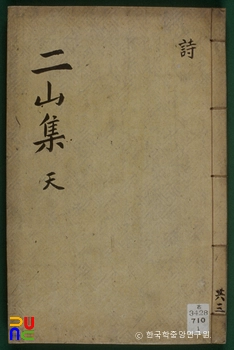 詩
二山集
天
共三
3428
710
RUNS
© 한국학중앙연구원